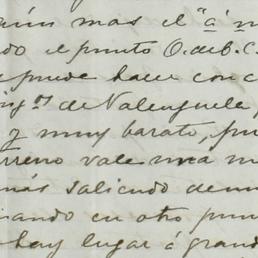 mas el "a"
do el punto O. de B. C.
puede hacer con c
ing.os de Valenzuela
y muy barato, pu
rreno vale una m
más saliendo de
ando en otro pun
hay lugar á grand